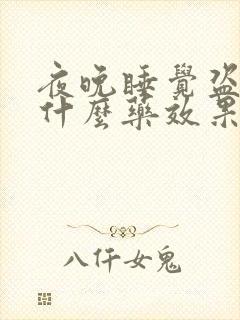 夜晚睡覺盜
什麼藥效果
八仟女鬼